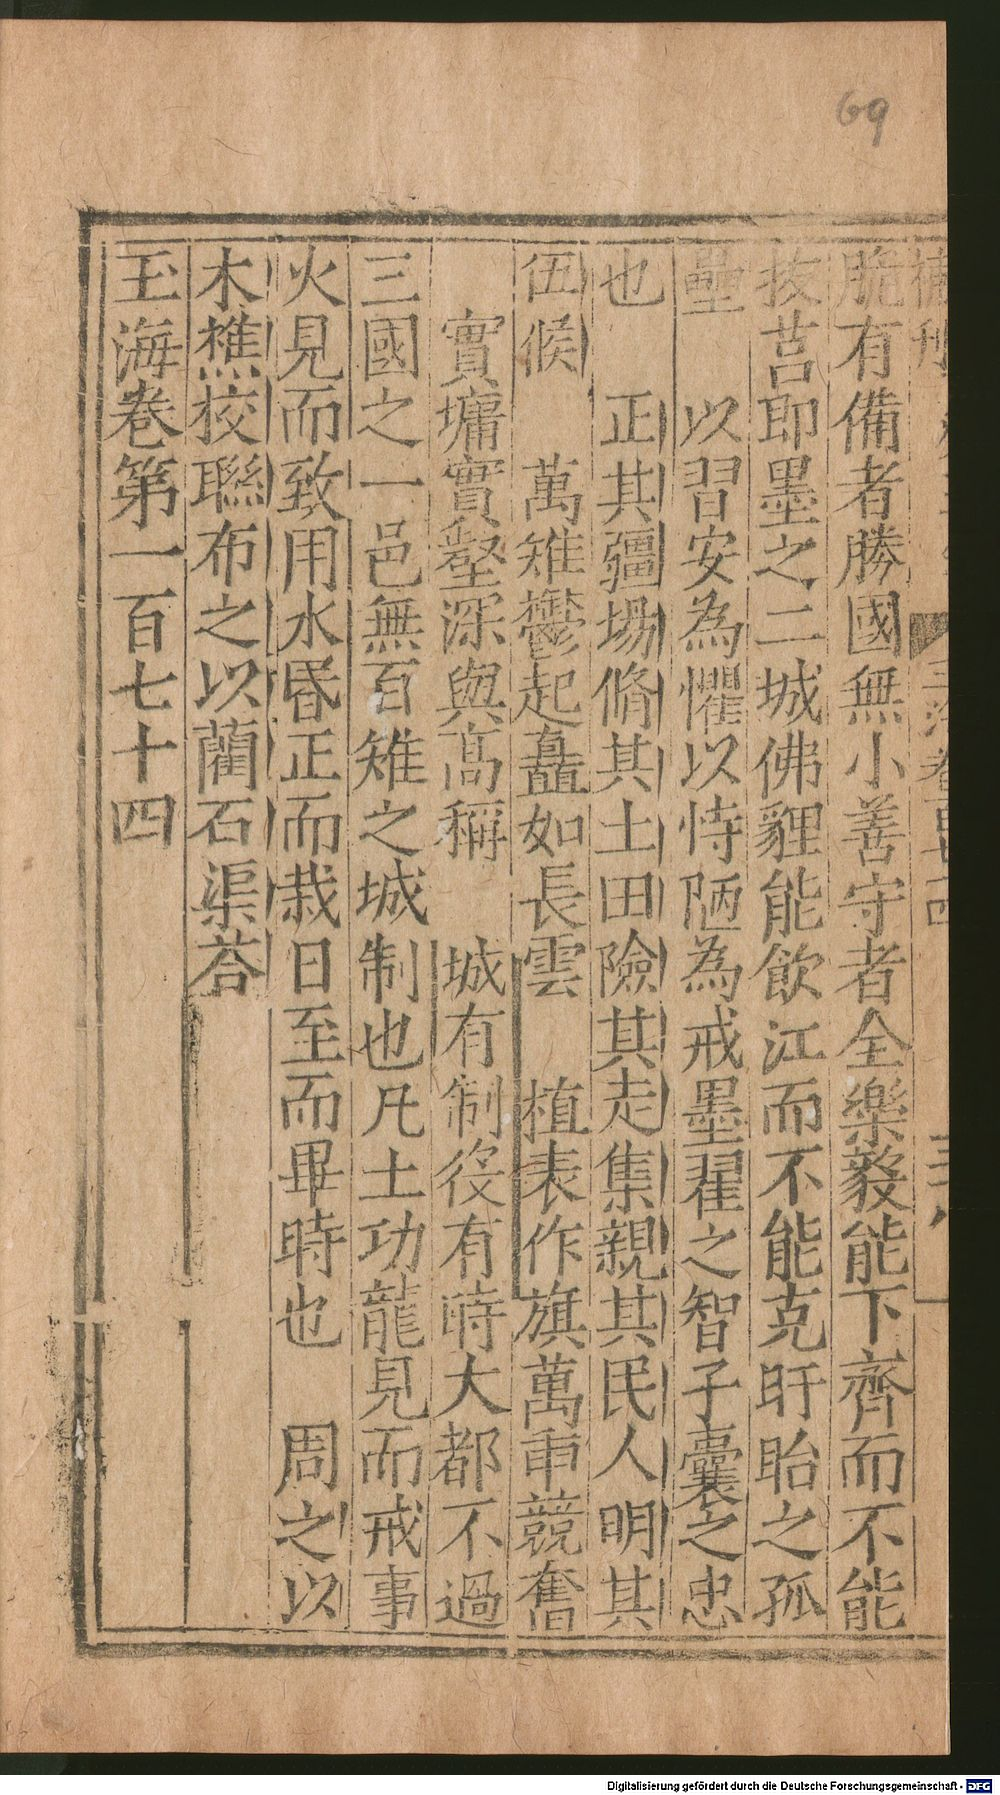 69
脆有備者勝國無小善守者全樂毅能下齊而不能
抜莒即墨之二城佛貍能飲江而不能克盱眙之孤
壘　以習安為懼以恃陋為戒墨翟之智子囊之忠
也　正其疆埸脩其土田險其走集親其民人明其
伍候　萬雉鬱起矗如長雲　植表作旗萬甬競奮
實墉實壑深與高稱　城有制役有時大都不過
三國之一邑無百雉之城制也凡土功龍見而戒事
火見而致用水昏正而栽日至而畢時也　周之以
木樵挍聯布之以藺石渠荅
玉海卷第一百七十四
Digitalisierung gefördert durch die Deutsche Forschungsgemeinschaft - DFG